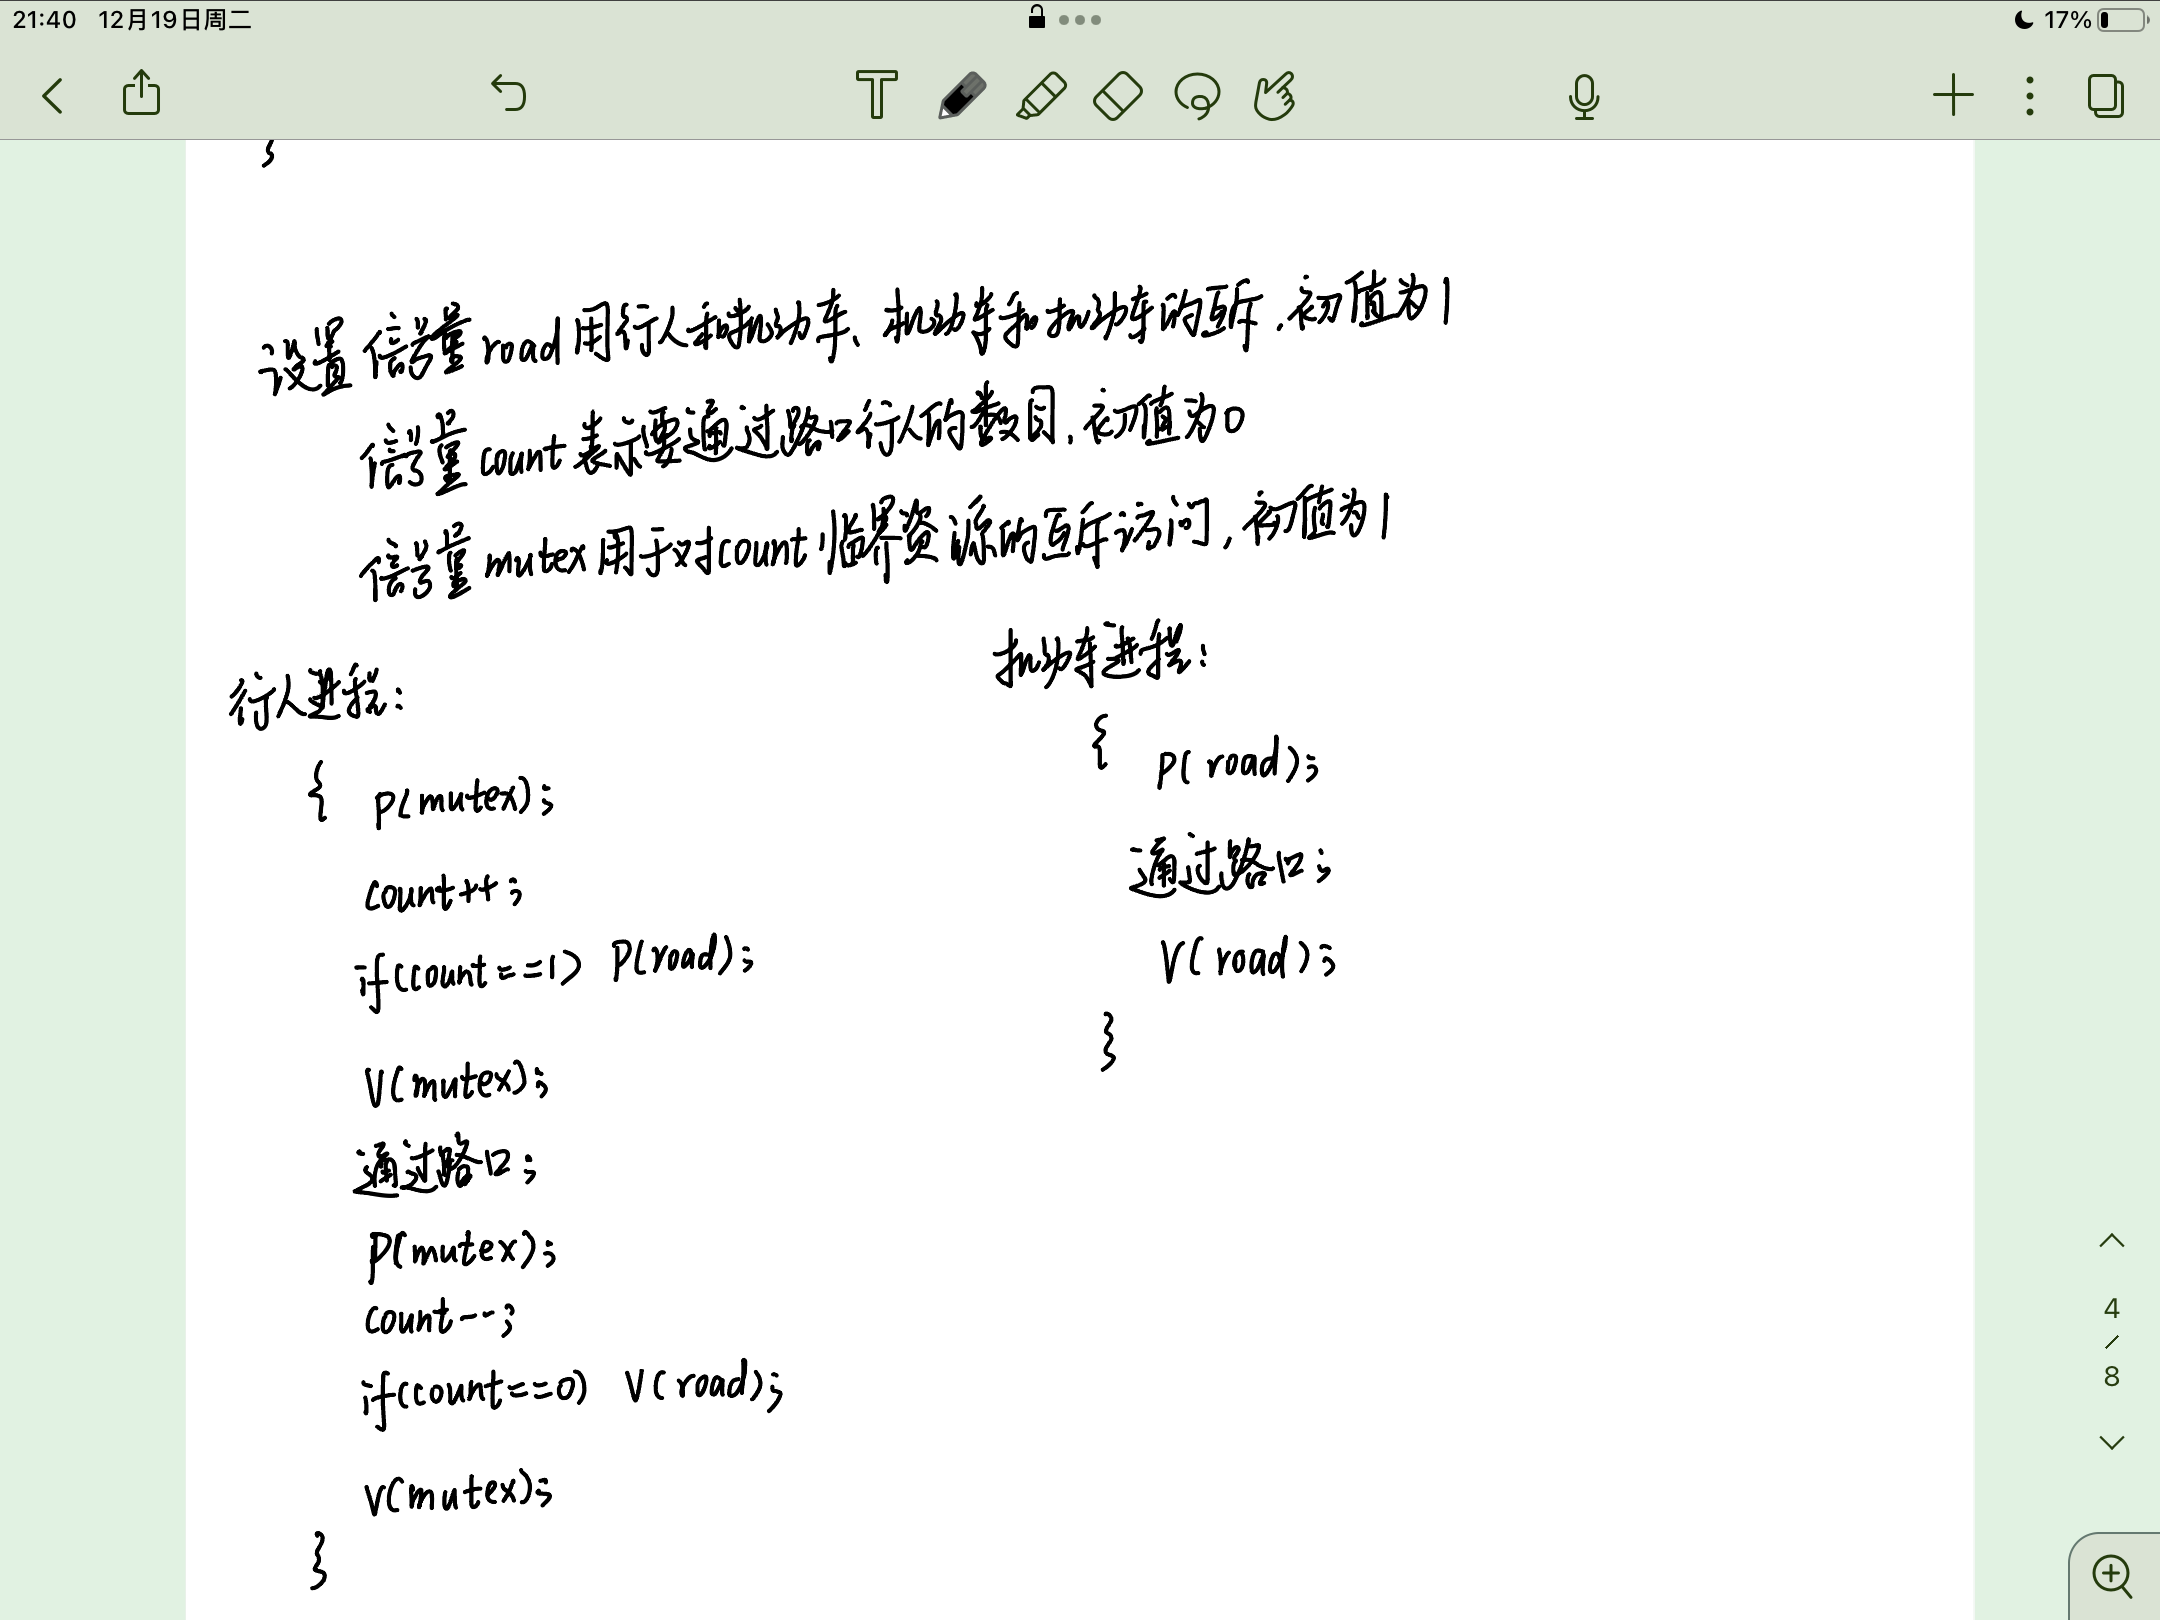 21:40 12月19日周二
17%
}
设置信号量road用行人和机动车、机动车和机动车的互斥,初值为1
信号量count表示要通过路口行人的数目,初值为0
信号量mutex用于对count临界资源的互斥访问,初值为1
行人进程:
{ P(mutex);
count++;
if(count==1) P(road);
V(mutex);
通过路口;
P(mutex);
count--;
if(count==0) V(road);
V(mutex);
}
机动车进程:
{ P(road);
通过路口;
V(road);
}
4
/
8